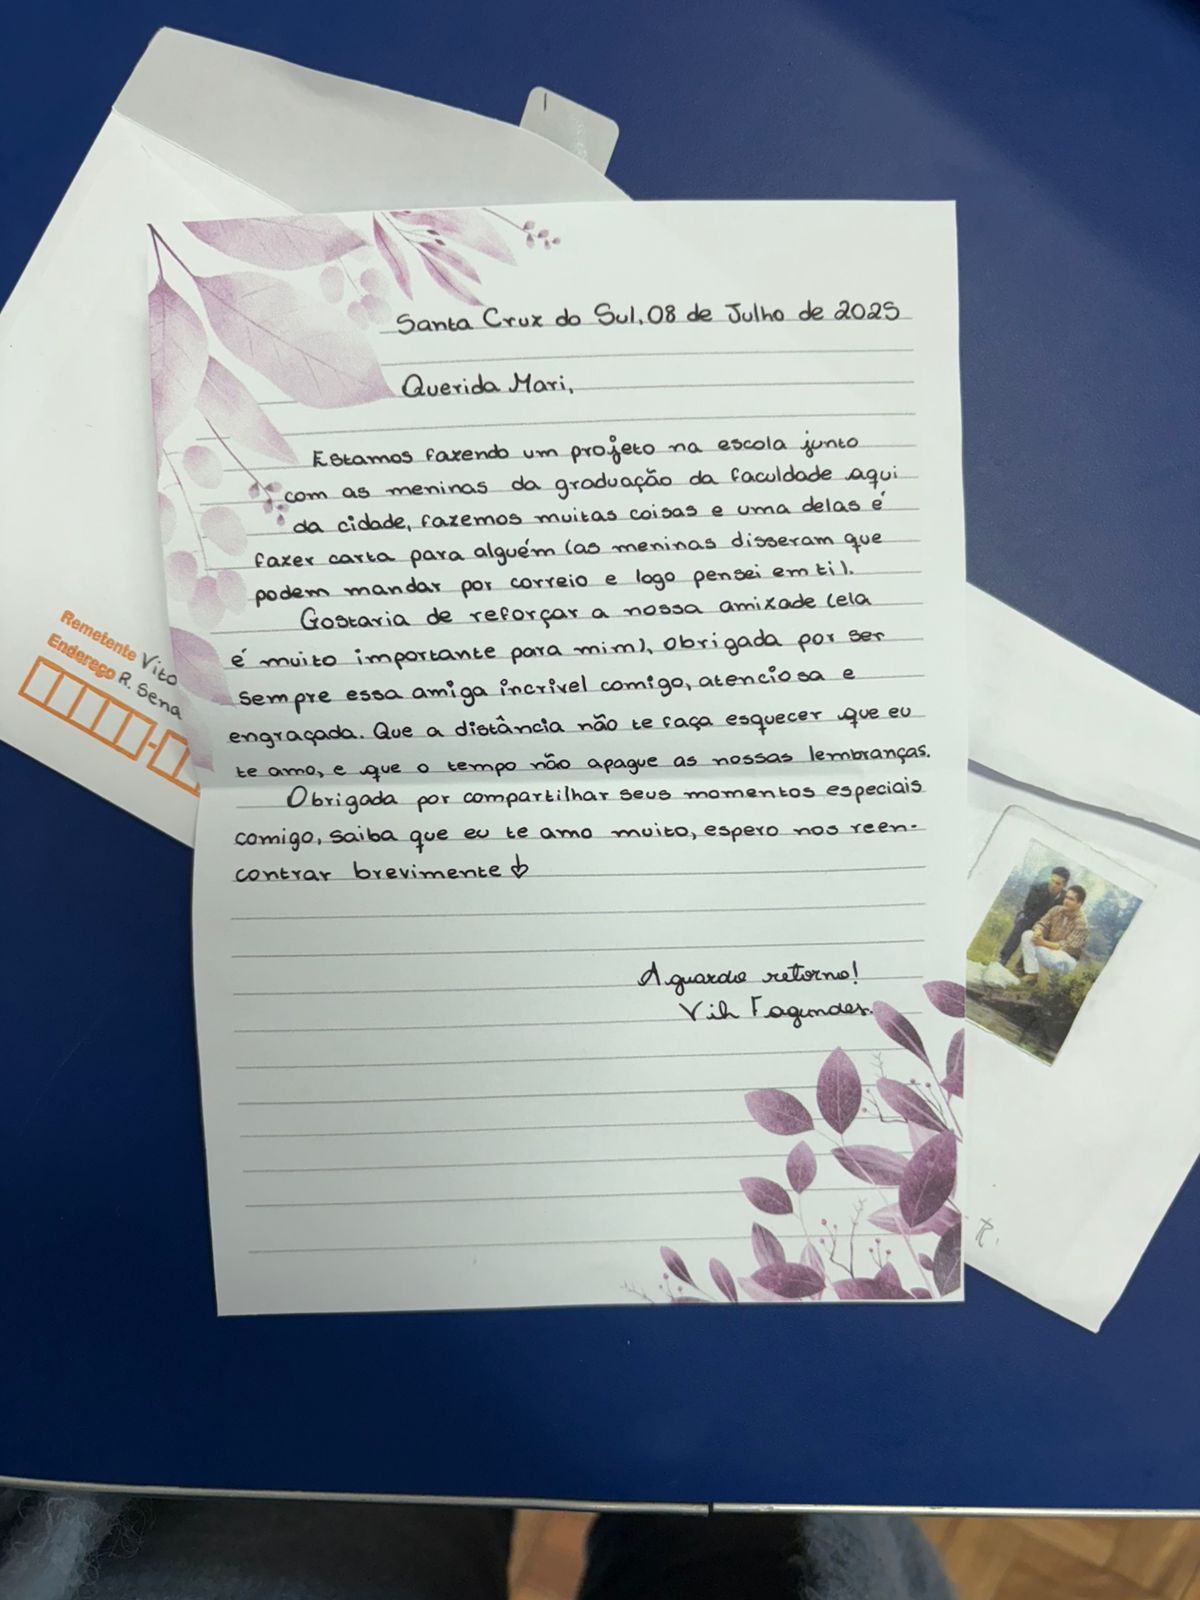 Santa Cruz do Sul, 08 de Julho de 2025
Querida Mari,
Estamos fazendo um projeto na escola junto
com as meninas da graduação da faculdade aqui
da cidade, fazemos muitas coisas e uma delas é
fazer carta para alguém (as meninas disseram que
podem mandar por correio e logo pensei em ti).
Gostaria de reforçar a nossa amizade (ela
é muito importante para mim), obrigada por ser
sempre essa amiga incrivel comigo, atenciosa e
engraçada. Que a distância não te faça esquecer que eu
te amo, e que o tempo não apague as nossas lembranças.
Obrigada por compartilhar seus momentos especiais
comigo, saiba que eu te amo muito, espero nos reen-
contrar brevimente
Aguardo retorno!
Vih Fagundes.
Remetente Vito
Endereço R. Sena